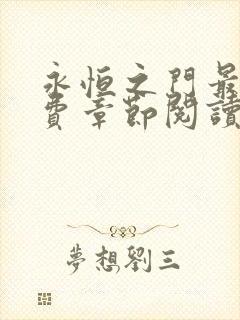 永恒之門最
費章節閱讀
夢想劉三